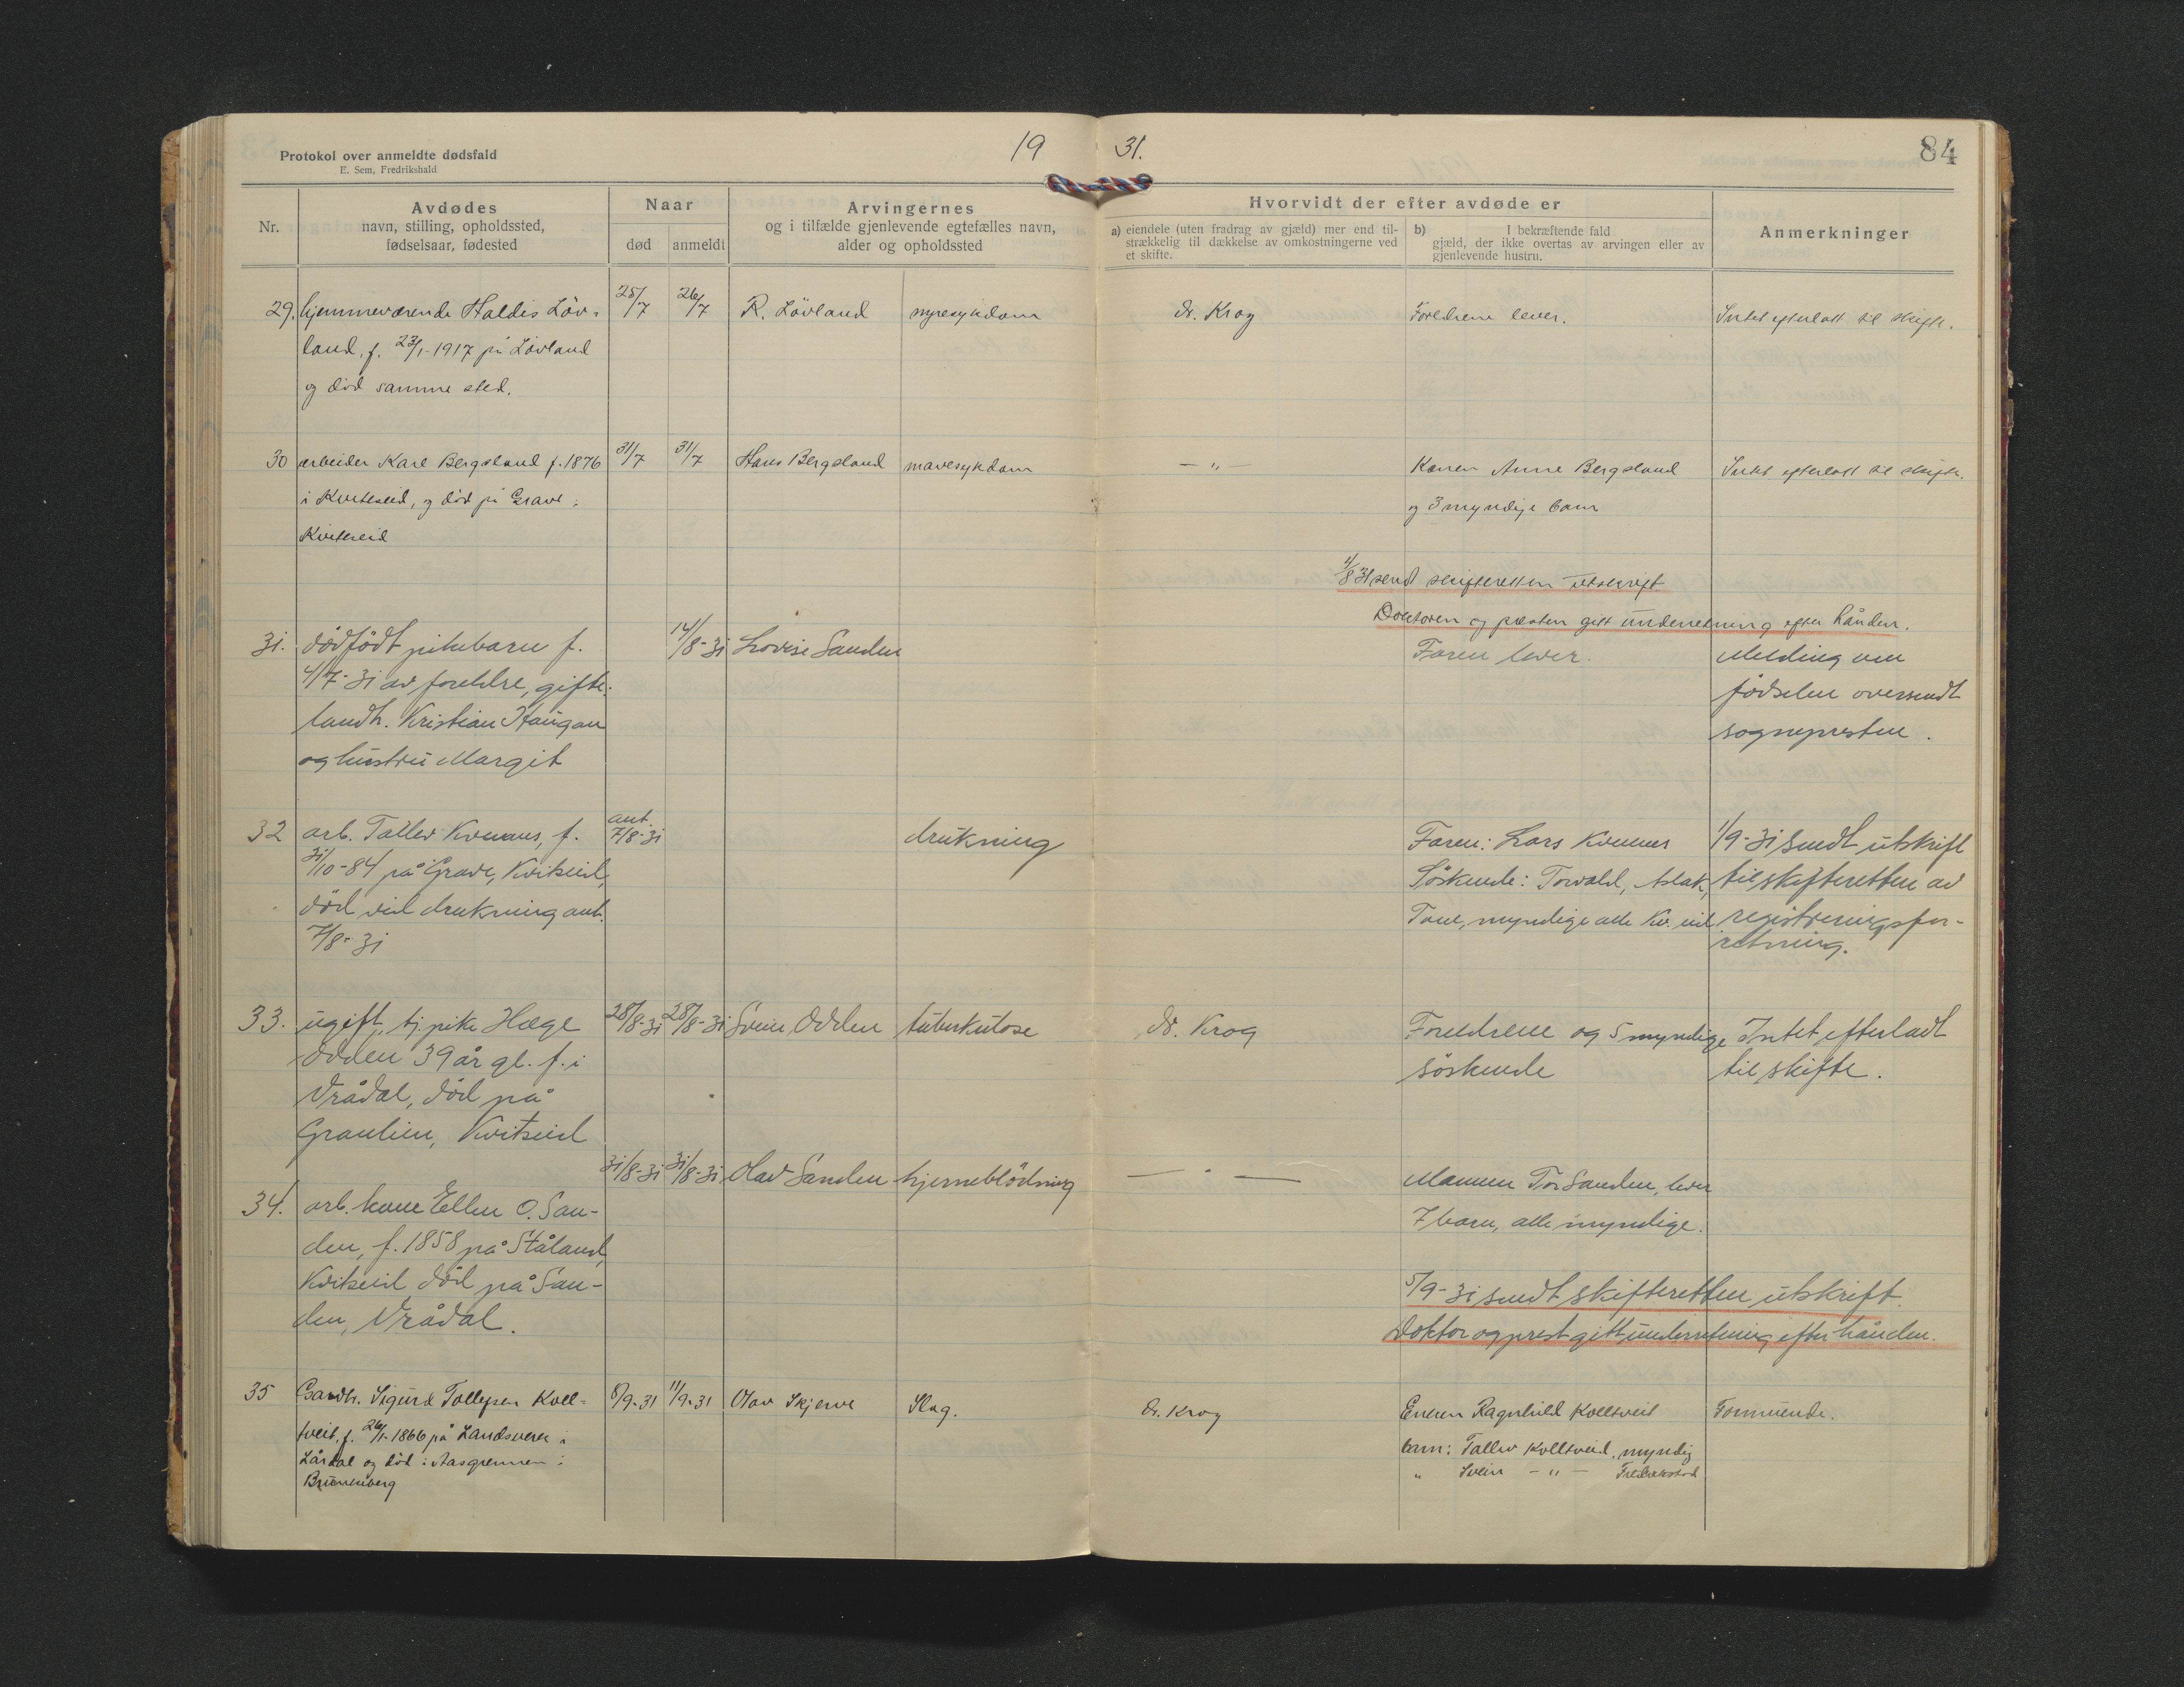 Protokol over anmeldte dødsfald
E. Sem, Fredrikshald
19 31.
84
Nr.
Avdødes
navn, stilling, opholdssted,
fødselsaar, fødested
Naar
død
anmeldt
Arvingernes
og i tilfælde gjenlevende egtefælles navn,
alder og opholdssted
Hvorvidt der efter avdøde er
a) eiendele (uten fradrag av gjæld) mer end til-
strækkelig til dækkelse av omkostningerne ved
et skifte.
b) I bekræftende fald
gjæld, der ikke overtas av arvingen eller av
gjenlevende hustru.
Anmerkninger
29. hjemmeværende Haldis Löv- 25/7 26/7 R. Lövland nyresykdom dr. Krog Foreldrene lever. Intet efterlatt til skifte.
land, f. 23/1-1917 på Lövland
og död samme sted.
30 arbeider Karl Bergsland f. 1876 31/7 31/7 Hans Bergsland mavesykdom — " — Konen Anne Bergsland Intet efterlatt til skifte.
i Kviteseid, og död på Grave i og 3 myndige barn
Kviteseid
1/8 31 send skifteretten utskrift
Doktoren og presten gitt underretning efter hånden.
31. dödfödt pikebarn f. 14/8-31 Lovise Sanden Faren lever. Melding om
4/7-31 av foreldre, gifte: födselen oversendt
landh. Kristian Haugan sognepresten.
og hustru Margit
32 arb. Tallev Kvennes, f. ant. 7/8-31 drukning Faren: Lars Kvennes 1/9-31 sendt utskrift
31/10-84 på Grave, Kviteseid, Söskende: Torvald, Aslak, til skifteretten av
död ved drukning ant. Tone, myndige alle Kv.eid registreringsfor-
7/8-31 retning.
33. ugift tj.pike Hæge 28/8-31 28/8-31 Svein Odden tuberkulose dr. Krog Foreldrene og 5 myndige Intet efterladt
Odden 39 år gl. f. i söskende til skifte.
Vrådal, död på
Graulien, Kvitseid
34. arb. kone Ellen O. San- 31/8-31 31/8-31 Olav Sanden hjerneblödning — " — Mannen Tor Sanden, lever
den, f. 1858 på Ståland, 7 barn, alle myndige.
Kvitseid död på San-
den, Vrådal.
5/9-31 sendt skifteretten utskrift.
Doktor og prest gitt underretning efter hånden.
35 Gardbr. Sigurd Tollefsen Kvell- 8/9-31 11/9-31 Olav Skjerve Slag. dr. Krog Enken Ragnhild Kolltveit Formuende.
tveit, f. 26/1-1866 på Landsverk i barn: Tallev Kolltveid, myndig
Lårdal og död i Aasgrennen i " Svein — " — Fredrikstad
Brunkeberg